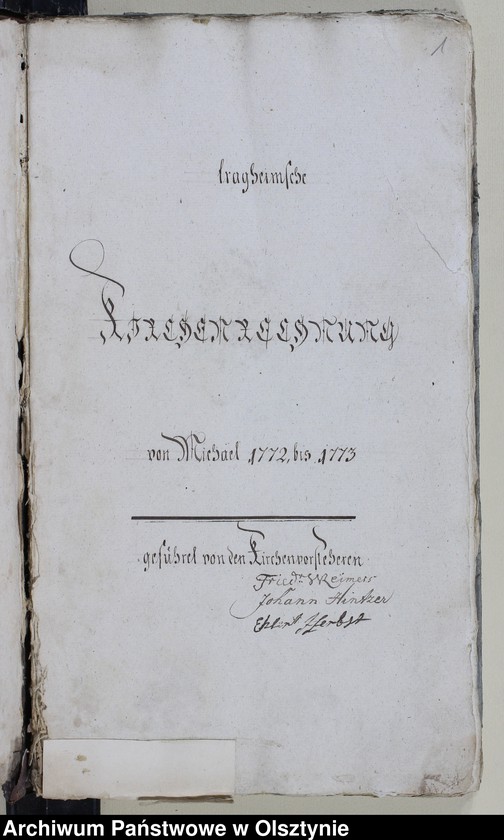 1
tragheimsche
KIRCHENRECHNUNG
von Michael 1772, bis 1773
geführet von den Kirchenvorsteheren
Fried: Reimers
Johann Hintzer
Herbst
Archiwum Państwowe w Olsztynie